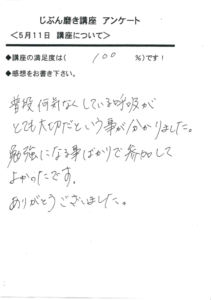 じぶん磨き講座 アンケート
＜5月11日 講座について＞
◆講座の満足度は( 100 %)です!
◆感想をお書き下さい。
普段何気なくしている呼吸が
とても大切だという事が分かりました。
勉強になる事ばかりで参加して
よかったです。
ありがとうございました。